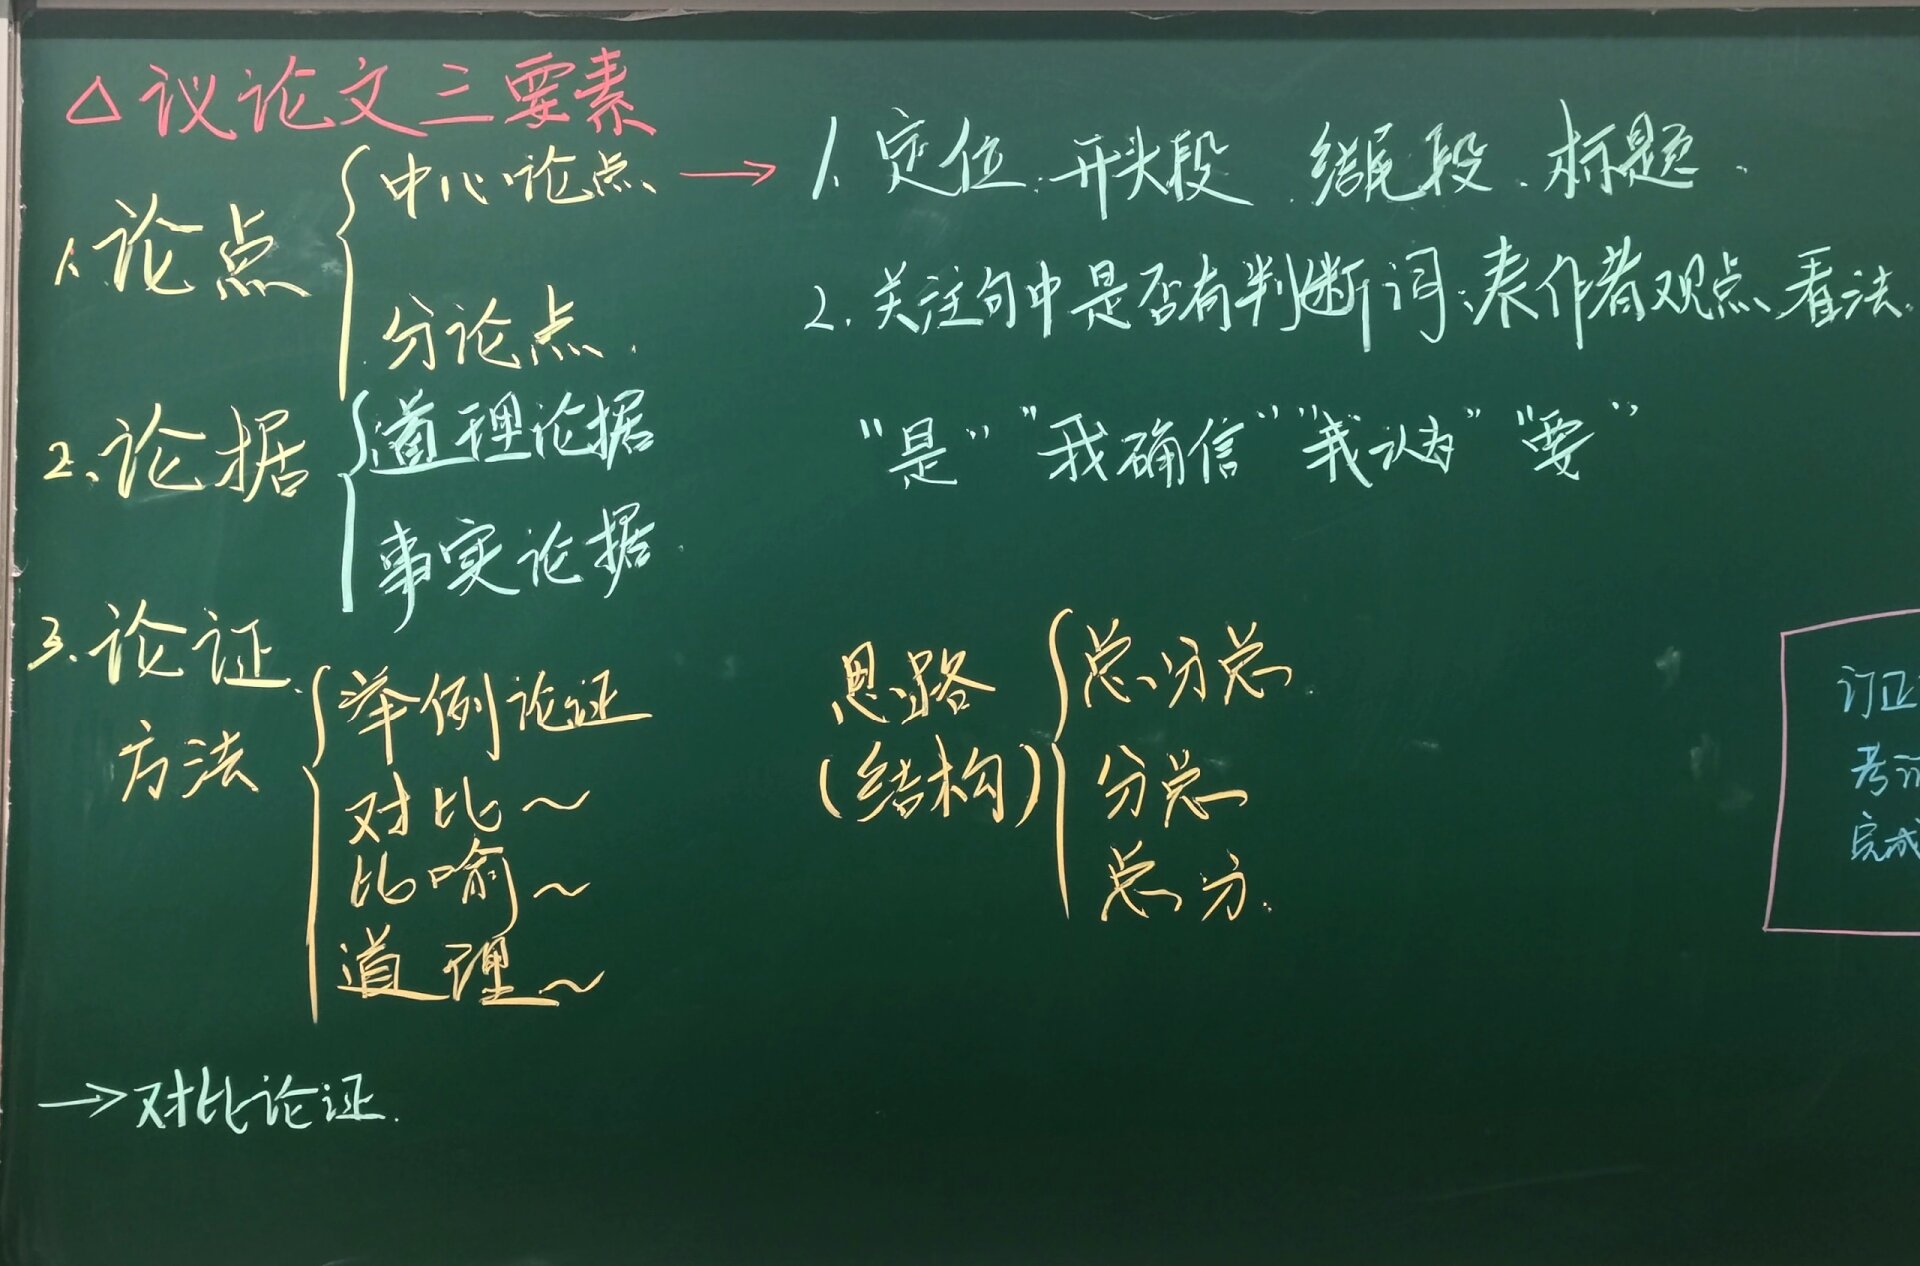 △议论文三要素
1.论点
中心论点、→
分论点.
1.定位:开头段、结尾段、标题.
2.关注句中是否有判断词:表作者观点、看法.
"是" "我确信" "我认为" "要"
2.论据
道理论据
事实论据.
3.论证方法
举例论证
对比~
比喻~
道理~
思路
(结构)
总分总.
分总
总分.
→对比论证.
订正
完成